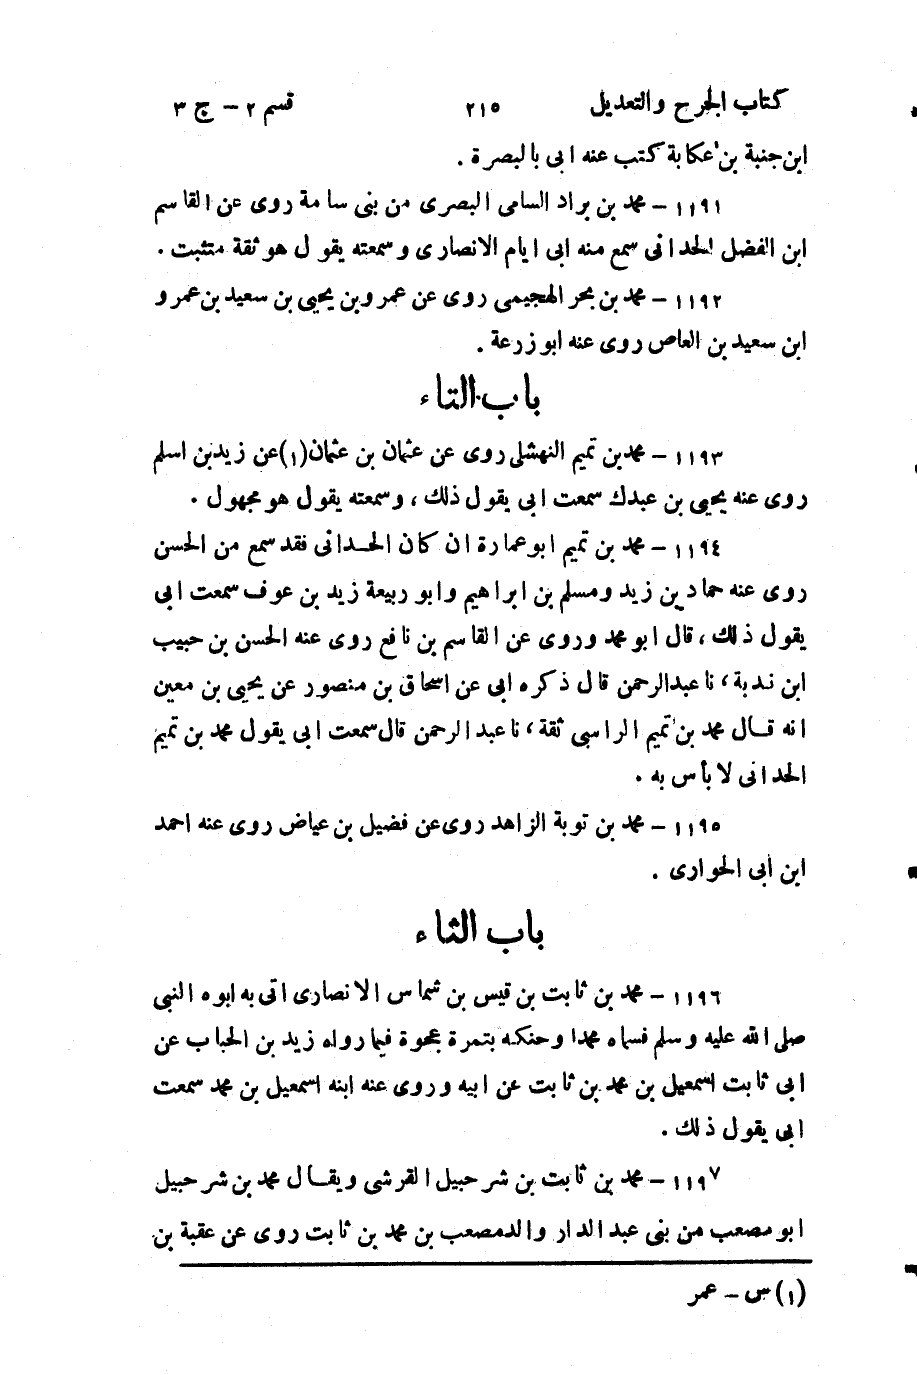 كتاب الجرح والتعديل ٢١٥ قسم ٢ – ج ٣
ابن جنبة بن عكابة كتب عنه ابى بالبصرة .
١١٩١ – محمد بن براد السامى البصرى من بنى سامة روى عن القاسم
ابن الفضل الحدانى سمع منه ابى ايام الانصارى وسمعته يقول هو ثقة متثبت .
١١٩٢ – محمد بن بحر الهجيمى روى عن عمرو بن يحيى بن سعيد بن عمرو
ابن سعيد بن العاص روى عنه ابو زرعة .
باب التاء
١١٩٣ – محمد بن تميم النهشلى روى عن عثمان بن عثمان (١) عن زيد بن اسلم
روى عنه يحيى بن عبدك سمعت ابى يقول ذلك ، وسمعته يقول هو مجهول .
١١٩٤ – محمد بن تميم ابو عمارة ان كان الحدانى فقد سمع من الحسن
روى عنه حماد بن زيد ومسلم بن ابراهيم وابو ربيعة زيد بن عوف سمعت ابى
يقول ذلك ، قال ابو محمد وروى عن القاسم بن نافع روى عنه الحسن بن حبيب
ابن ندبة ، نا عبد الرحمن قال ذكره ابى عن اسحاق بن منصور عن يحيى بن معين
انه قال محمد بن تميم الراسبى ثقة ، نا عبد الرحمن قال سمعت ابى يقول محمد بن تميم
الحدانى لا بأس به .
١١٩٥ – محمد بن توبة الزاهد روى عن فضيل بن عياض روى عنه احمد
ابن ابى الحوارى .
باب الثاء
١١٩٦ – محمد بن ثابت بن قيس بن شماس الانصارى اتى به ابوه النبى
صلى الله عليه وسلم فسماه محمدا وحنكه بتمرة عجوة فيما رواه زيد بن الحباب عن
ابى ثابت اسمعيل بن محمد بن ثابت عن ابيه وروى عنه ابنه اسمعيل بن محمد سمعت
ابى يقول ذلك .
١١٩٧ – محمد بن ثابت بن شرحبيل القرشى ويقال محمد بن شرحبيل
ابو مصعب من بنى عبد الدار والد مصعب بن محمد بن ثابت روى عن عقبة بن
(١) س – عمر